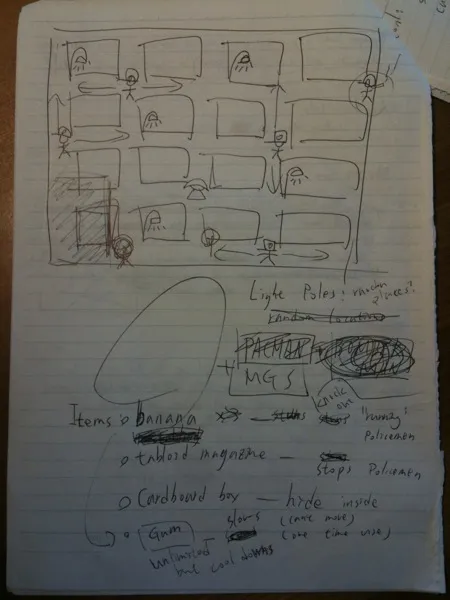 Light Poles: random places!
Random Locations
PACMAN +
+ MGS
Items: o banana — knock out "hungry" Policemen
o tabloid magazine — stops Policemen
o Cardboard box — hide inside
(can't move)
(one time use)
o Gum — slows
unlimited
but cool downs